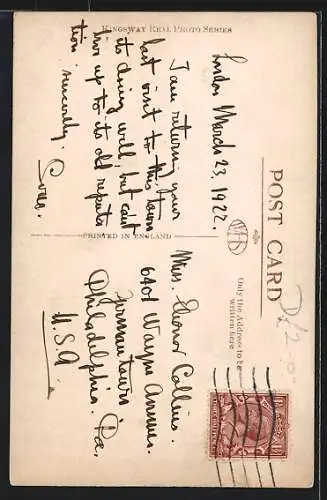 KINGSWAY REAL PHOTO SERIES
POST CARD
PRINTED IN ENGLAND
Only the Address to be
written here
London March 23, 1922.
I am returning your
last visit to this town
its doing well, but can't
live up to its old reputa
tion
Sincerely,
Miss. Elionor Collins.
6401 Wayne Avenue.
Germantown
Philadelphia. Pa.
U.S.A